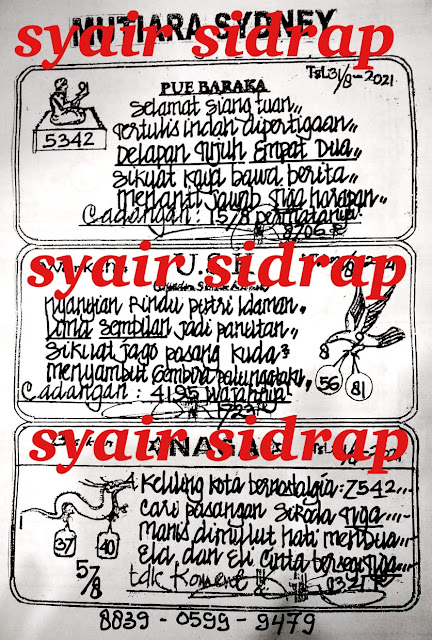 MUTIARA SYDNEY
syair sidrap
Tgl 31/8-2021
PUE BARAKA
5342
Selamat siang tuan,,
Tertulis indah dipertigaan,,
Delapan Tujuh Empat Dua,,
Sikuat kaya bawa berita,,
menanti jawab Tiga harapan,,
Cadangan : 1578 permatanya.
8706
syair sidrap
U.S.H
nyanyian Rindu putri Idaman,,
Lima Sembilan jadi panutan,,
Sikuat jago pasang kuda²
menyambut Gembira
Cadangan : 4195 wajahnya
1723
8
56 81
syair sidrap
ANAGA
Keliling kota bernostalgia : 2542,,,
Cari pasangan Tiga,,,
Manis dimulut hati mendua
Ela dan Eli Cinta Tiga,,,
tdk Koment
9321
37 40
5/8
8839-0599-9479